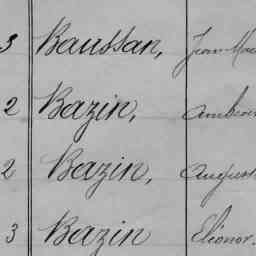 3 Baussan, Jean Mar
2 Bazin, Ambroi
2 Bazin, August
3 Bazin Eléonor.